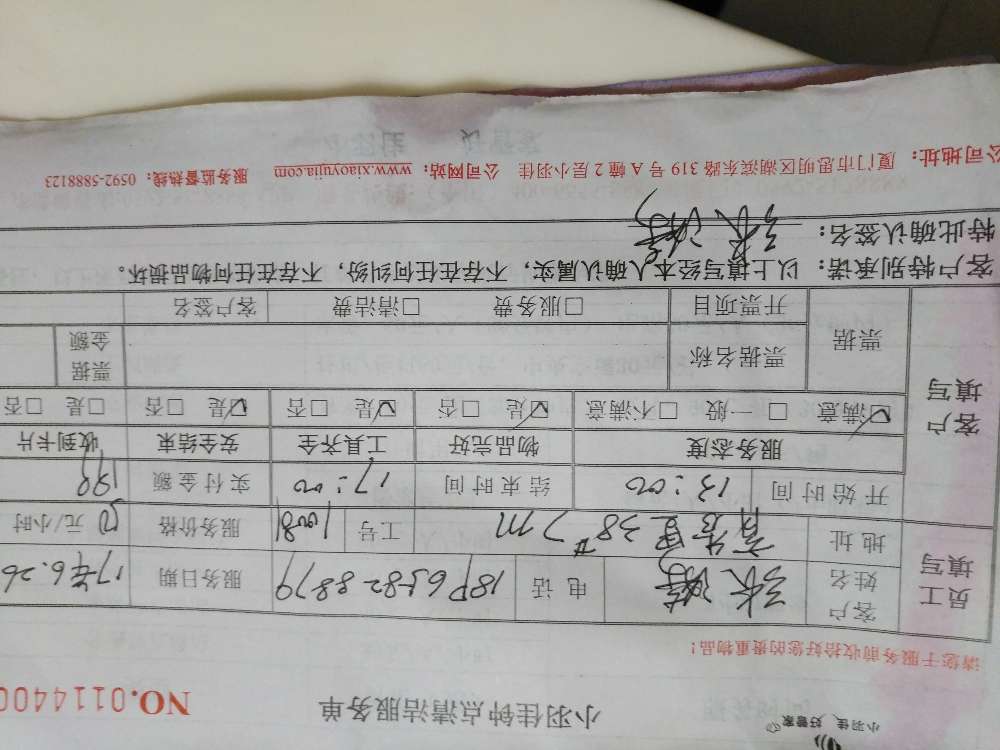 小羽佳、好管家
小羽佳钟点清洁服务单 NO.0114400
请您于服务前收拾好您的贵重物品！
员工填写 客户姓名 张 电话 服务日期 17年6.26
地址 工号 10081 服务价格 50元/小时
开始时间 13:00 结束时间 17:00 实付金额 199
客户填写 服务态度 物品完好 工具齐全 安全结束 收到卡片
☑满意 □一般 □不满意 ☑是 □否 ☑是 □否 ☑是 □否 □是 □否
票据 票据名称 票据金额
开票项目 □服务费 □清洁费 客户签名
客户特别承诺：以上填写经本人确认属实，不存在任何纠纷，不存在任何物品损坏。
特此确认签名：张
公司地址：厦门市思明区湖滨东路 319 号 A 幢 2 层小羽佳 公司网站：www.xiaoyujia.com 服务监督热线：0592-5888123